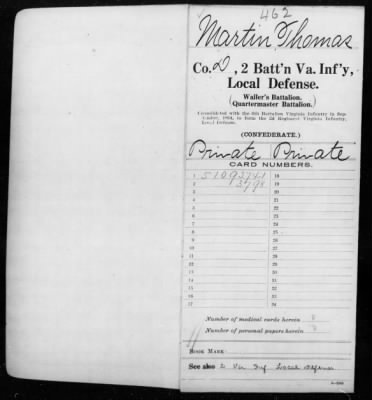 462
Martin Thomas
Co. D, 2 Batt'n Va. Inf'y,
Local Defense.
(Waller's Battalion.
Quartermaster Battalion.)
Consolidated with the 6th Battalion Virginia Infantry in Sep-
tember, 1864, to form the 2d Regiment Virginia Infantry,
Local Defense.
(CONFEDERATE.)
Private Private
CARD NUMBERS.
1 51093741 18
2 3798 19
3 20
4 21
5 22
6 23
7 24
8 25
9 26
10 27
11 28
12 29
13 30
14 31
15 32
16 33
17 34
Number of medical cards herein 0
Number of personal papers herein 0
BOOK MARK:
See also 2 Va Inf Local Defense